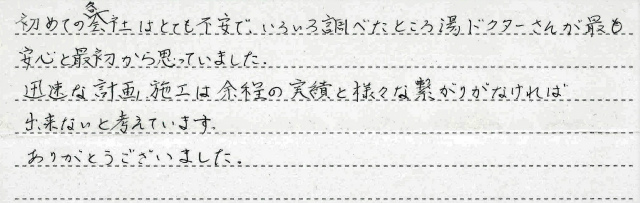 初めての各社はとても不安で、いろいろ調べたところ湯ドクターさんが最も
安心と最初から思っていました。
迅速な計画、施工は余程の実績と様々な繋がりがなければ
出来ないと考えています。
ありがとうございました。